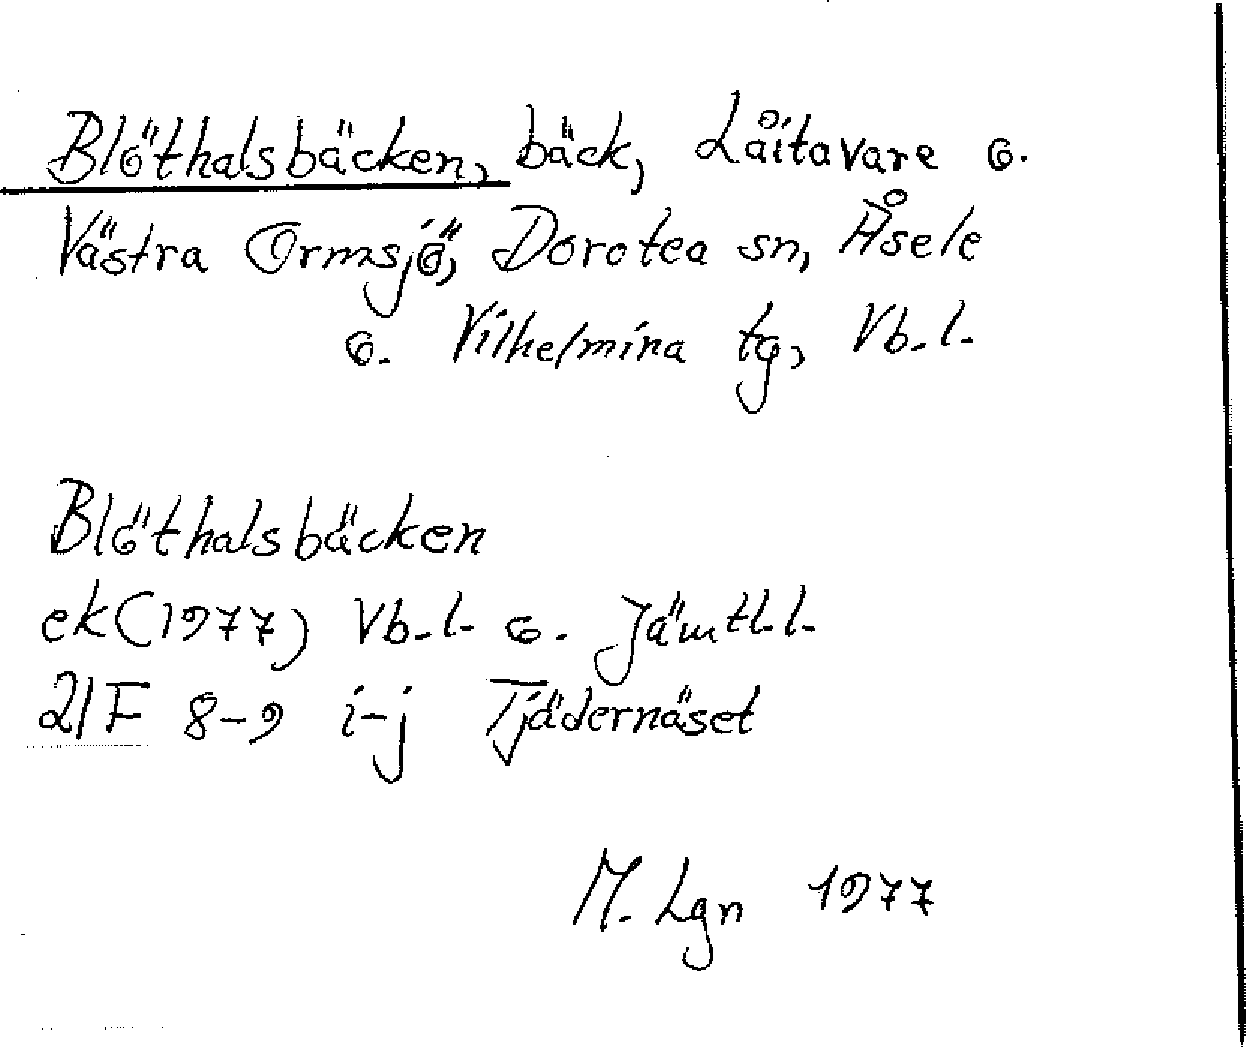 Blöthalsbäcken, bäck, Låitavare o.
Västra Ormsjö, Dorotea sn, Åsele
o. Vilhelmina tg, Vb.l.
Blöthalsbäcken
ek(1977) Vb.l. o. Jämtl.l.
21F 8-9 i-j Tjädernäset
M. Lgn 1977